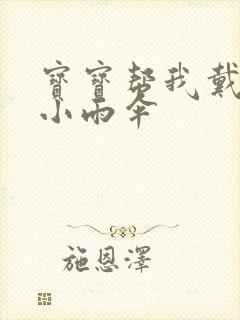 寶寶幫我戴
小雨伞
施恩澤